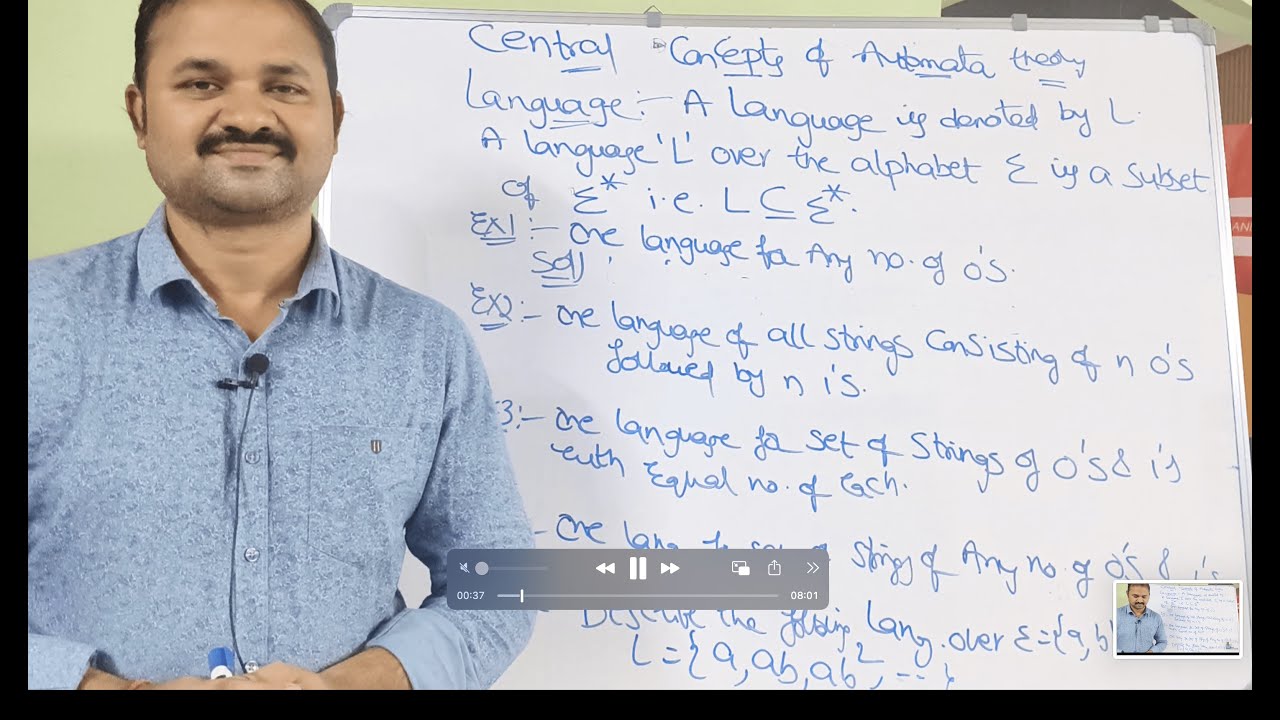 Central Concepts of Automata theory
Language:- A Language is denoted by L.
A language 'L' over the alphabet Σ is a subset
of Σ* i.e. L ⊆ Σ*.
Ex1:- One language for Any no. of 0's.
Sol)
Ex2:- One language of all strings Consisting of n 0's
followed by n 1's.
3:- One language for set of Strings of 0's & 1's
with Equal no. of Each.
One lang of String of Any no. of 0's & 1's
00:37 08:01
Describe the following Lang. over Σ={a,b
L={a,ab,ab²,--}